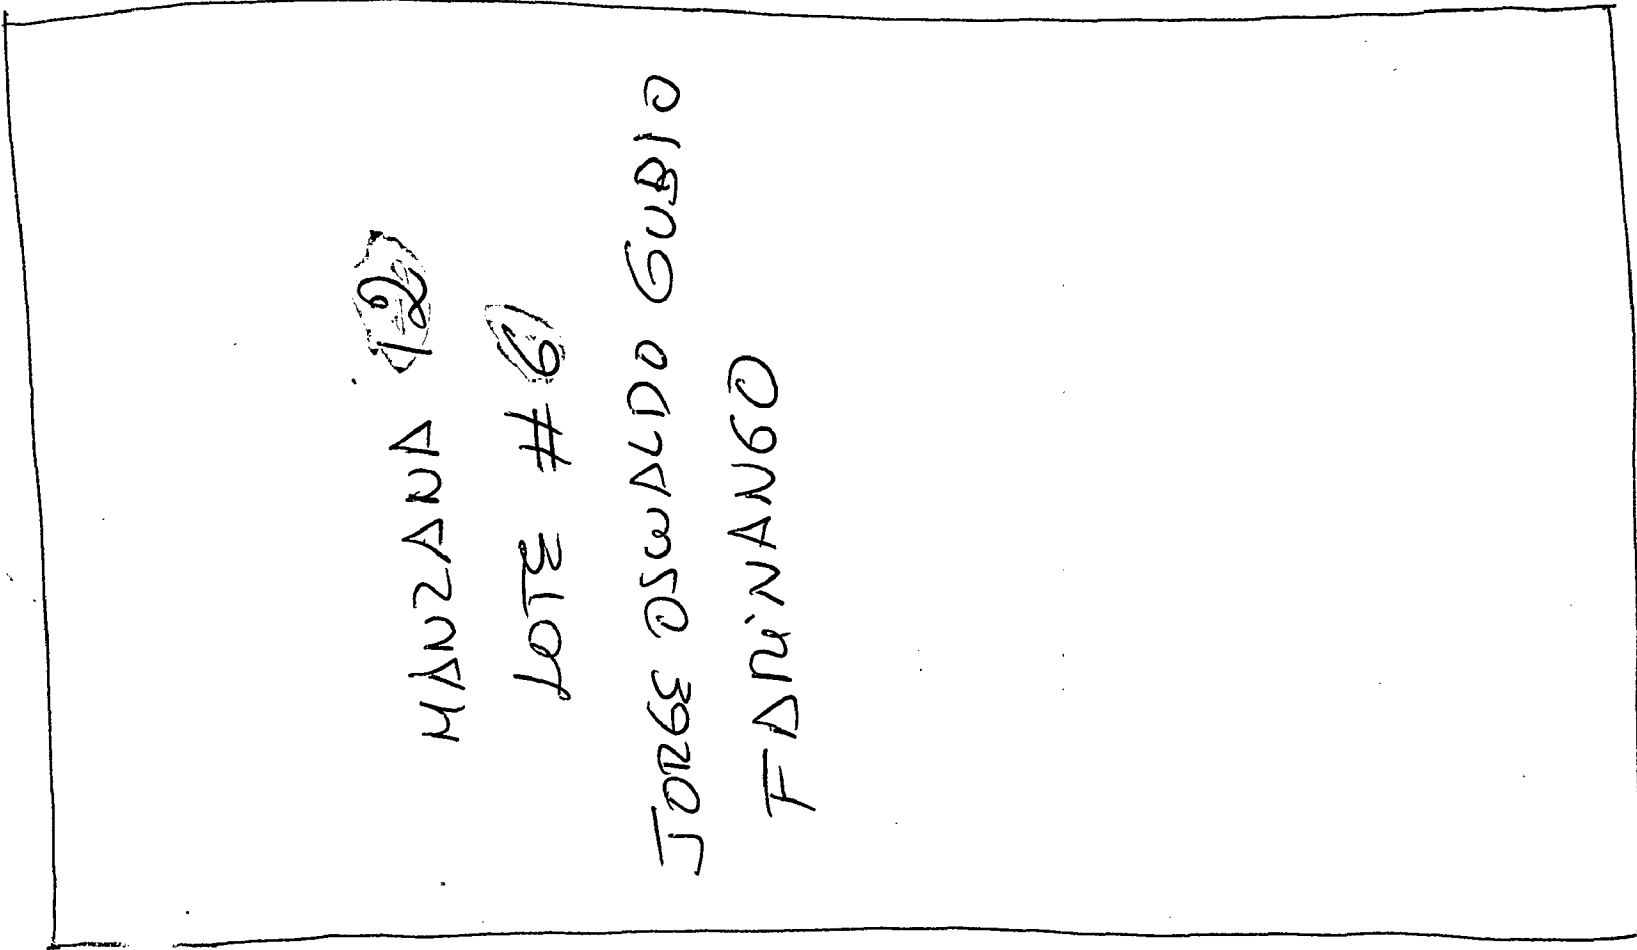 MANZANA 12
LOTE # 6
JORGE OSWALDO GUBIO
FARINANGO